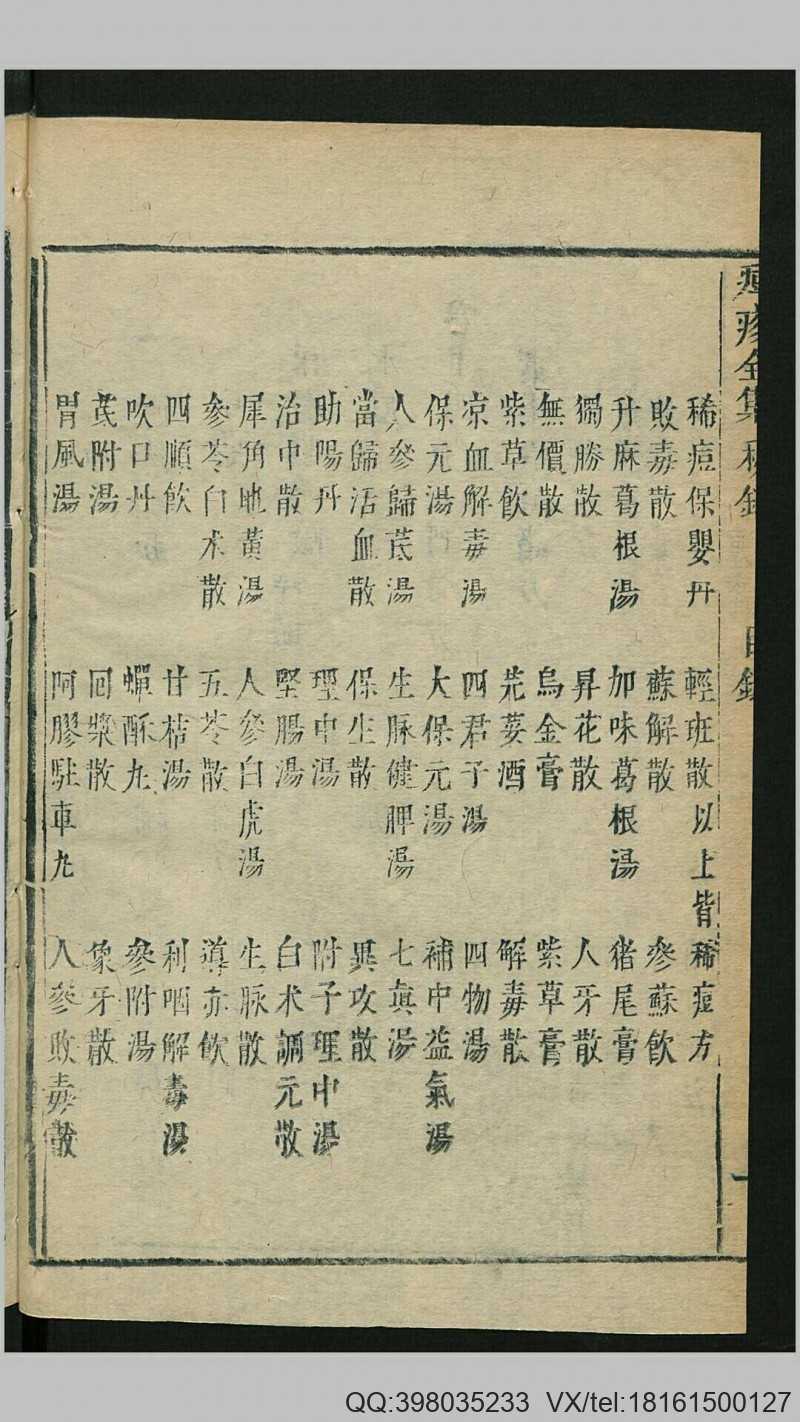 痘疹全集 目錄 一
稀痘保嬰丹 輕班散以上皆稀痘方
敗毒散 蘇解散 參蘇飲
升麻葛根湯 加味葛根湯 猪尾膏
獨勝散 昇花散 人牙散
無價散 烏金膏 紫草膏
紫草飲 芫荽酒 解毒散
凉血解毒湯 四君子湯 四物湯
保元湯 大保元湯 補中益氣湯
人參歸芪湯 生脉健脾湯 七眞湯
當歸活血散 保生散 異攻散
助陽丹 理中湯 附子理中湯
治中散 堅腸湯 白术調元散
犀角地黃湯 人參白虎湯 生脉散
參苓白术散 五苓散 導赤飲
四順飲 甘桔湯 利咽解毒湯
吹口丹 蟬酥九 參附湯
芪附湯 回漿散 象牙散
胃風湯 阿膠駐車九 人參敗毒散
QQ:398035233 VX/tel:18161500127